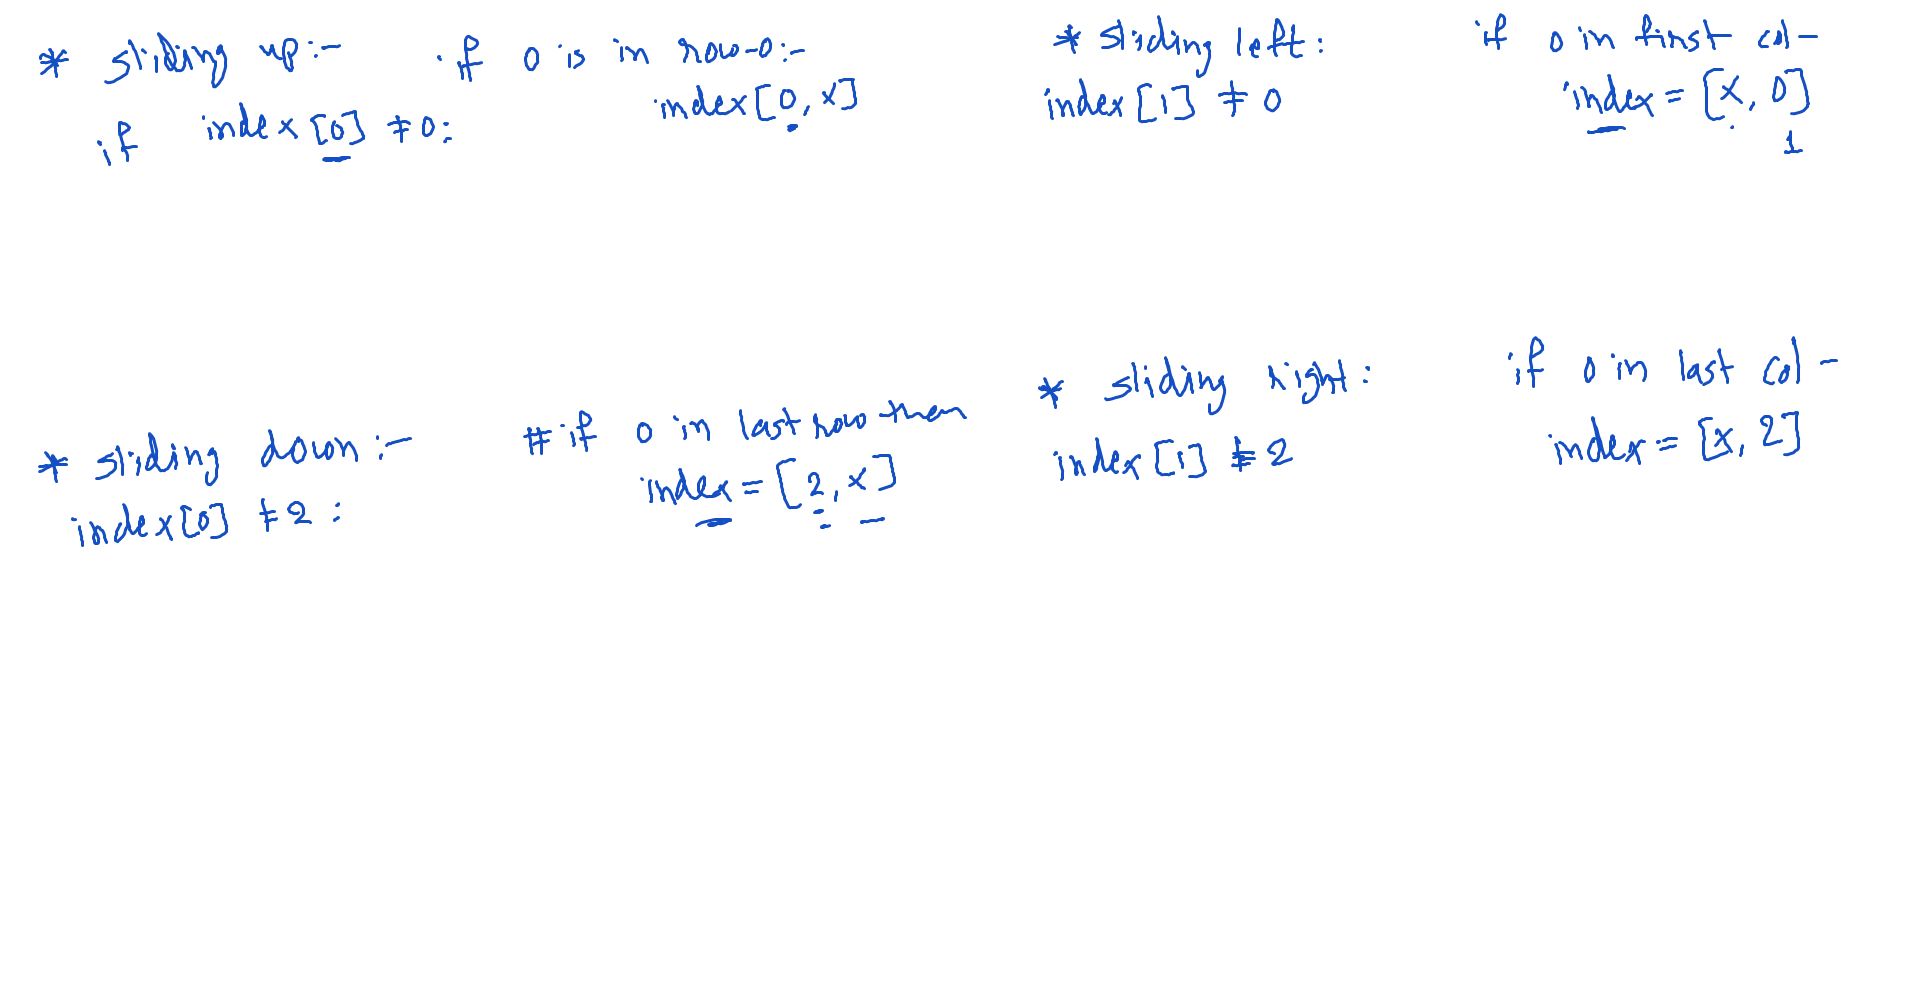 * sliding up :-
if index[0] ≠ 0:
if 0 is in row-0:-
index[0, x]
* sliding left:
index[1] ≠ 0
if 0 in first col -
index = [x, 0]
1
* sliding down :-
index[0] ≠ 2 :
# if 0 in last row then
index = [2, x]
* sliding right:
index[1] ≠ 2
if 0 in last col -
index = [x, 2]